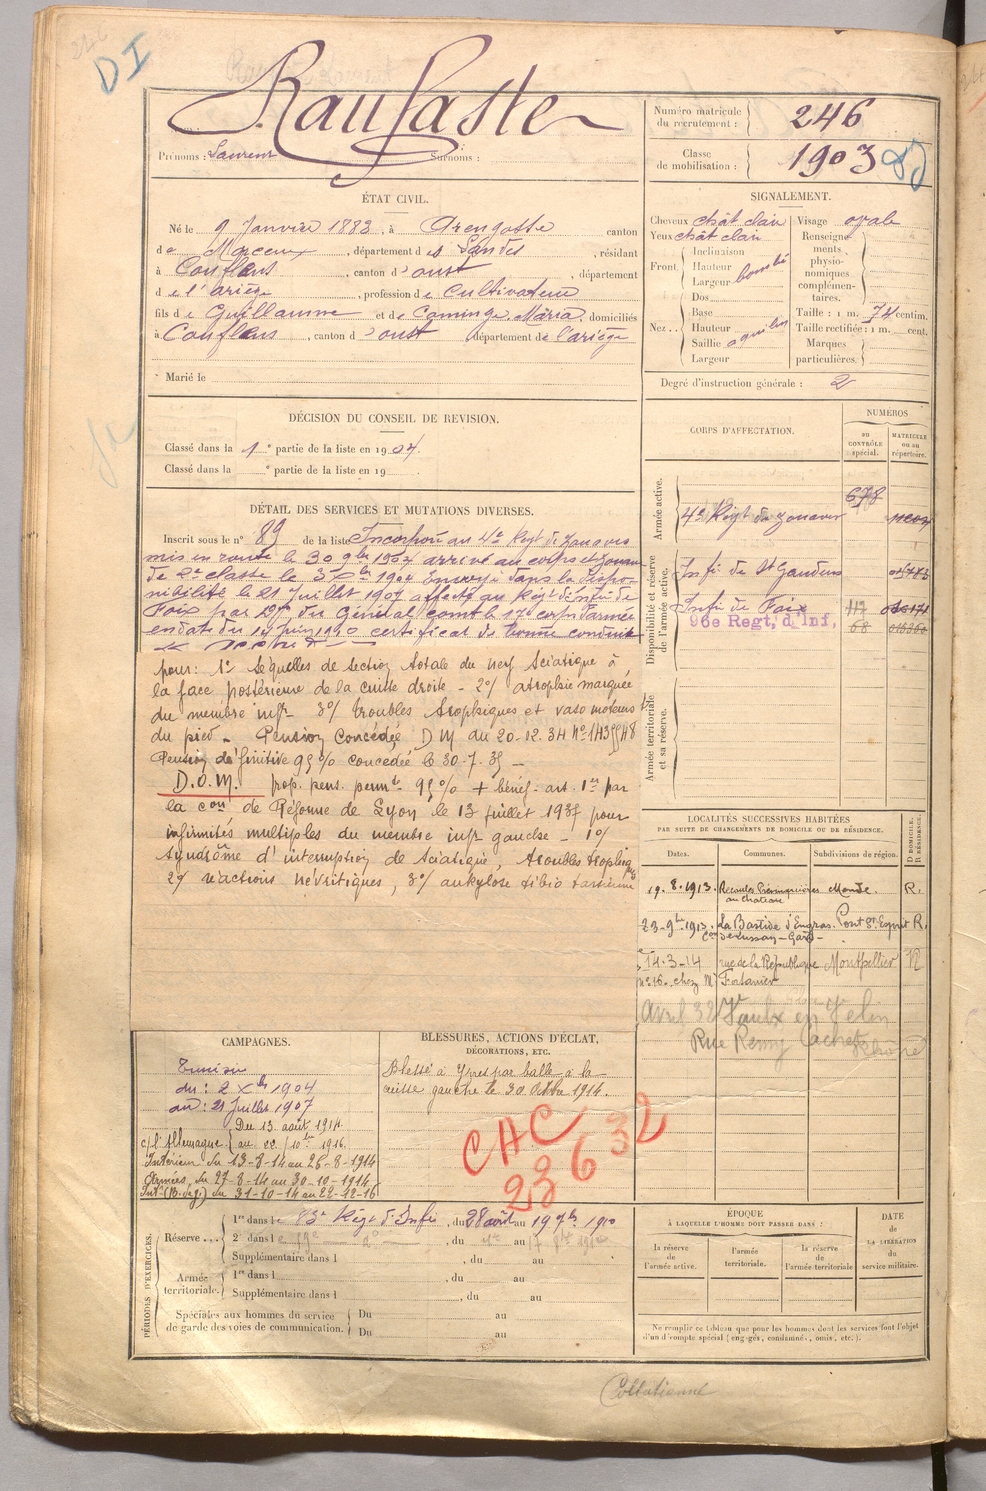 DI
Raufaste
Prénoms : Laurent Surnoms :
Numéro matricule du recrutement : 246
Classe de mobilisation : 1903
ÉTAT CIVIL.
Né le 9 Janvier 1883, à Arengosse canton
de Morcenx, département des Landes, résidant
à Couflens, canton d'oust, département
de l'ariège, profession de Cultivateur
fils de Guillaume et de Cominge Maria, domiciliés
à Couflens, canton d'oust département de l'ariège
Marié le
SIGNALEMENT.
Cheveux chât clair
Yeux chât clair
Front. Inclinaison
Hauteur bombé
Largeur
Nez. Dos
Base
Hauteur
Saillie aquilin
Largeur
Visage ovale
Renseignements physionomiques complémentaires.
Taille : 1 m. 74 centim.
Taille rectifiée : 1 m. cent.
Marques particulières.
Degré d'instruction générale : 2
DÉCISION DU CONSEIL DE REVISION.
Classé dans la 1e partie de la liste en 1904
Classé dans la e partie de la liste en 19
DÉTAIL DES SERVICES ET MUTATIONS DIVERSES.
Inscrit sous le n° 89 de la liste Incorporé au 4e Regt de Zouaves
mis en route le 30 9bre 1904 arrivé au corps et Zouave
de 2e classe le 2 Xbre 1904 Envoyé dans la dispo-
nibilité le 21 Juillet 1907 affecté au Regt d'infie de
Foix par Don du Général comt le 17e corps d'armée
en date du 14 Juin 1910 certificat de bonne conduite
pour: 1° Séquelles de section totale du nerf sciatique à
la face postérieure de la cuisse droite - 2°/ atrophie marquée
du membre infr - 3°/ troubles trophiques et vaso moteurs
du pied - Pension Concédée D M du 20-12-34
Pension définitive 95% concedée le 30-7-35 -
D.O.M. prop. pens. permte 95% + bénéf. art. 1er par
la con de Réforme de Lyon, le 13 juillet 1937 pour
infirmités multiples du membre infr gauche - 1°/
syndrôme d'interruption de sciatique, troubles trophiques
2°/ réactions névritiques, 3°/ ankylose tibio tarsienne
CORPS D'AFFECTATION.
NUMÉROS
au CONTRÔLE spécial.
MATRICULE ou au répertoire.
Armée active.
4e Régt de Zouaves 678
Disponibilité et réserve de l'armée active.
Infie de St Gaudens
Infie de Foix 117
96e Regt. d'Inf. 68
Armée territoriale et sa réserve.
LOCALITÉS SUCCESSIVES HABITÉES
PAR SUITE DE CHANGEMENTS DE DOMICILE OU DE RÉSIDENCE.
Dates. Communes. Subdivisions de région. D DOMICILE. R RÉSIDENCE.
19.8.1913. au Chateau Mende. R.
23-9bre-1913. La Bastide d'Engras. Pont St Esprit R.
Con de Lussan - Gard -
14-3-14 rue de la République Montpellier R
n° 16. chez Mr Fortanier
Avril 32 Vaulx en Velin
Rue Remy Cachet Rhône
CAMPAGNES.
Tunisie
du : 2 Xbre 1904
au : 21 Juillet 1907
c/ l'Allemagne. Du 13 août 1914
au 22/10bre 1916.
Intérieur du 13-8-14 au 26-8-1914
Armées, du 27-8-14 au 30-10-1914
Int (B. de g.) du 31-10-14 au 22-12-16
BLESSURES, ACTIONS D'ÉCLAT,
DÉCORATIONS, ETC.
Blessé à Ypres par balle à la
cuisse gauche le 30 Octbre 1914.
CAC
23632
PÉRIODES D'EXERCICES.
Réserve... 1re dans le 83e Régt d'Infie, du 28 août au 19 7bre 1910
2e dans le , du au
Supplémentaire dans l , du au
Armée territoriale. 1re dans l , du au
Supplémentaire dans l , du au
Spéciales aux hommes du service
de garde des voies de communication. Du au
Du au
ÉPOQUE
À LAQUELLE L'HOMME DOIT PASSER DANS :
la réserve de l'armée active.
l'armée territoriale.
la réserve de l'armée territoriale
DATE
de
LA LIBÉRATION
du
service militaire.
Ne remplir ce tableau que pour les hommes dont les services font l'objet
d'un décompte spécial (engagés, condamnés, omis, etc.).
Collationné